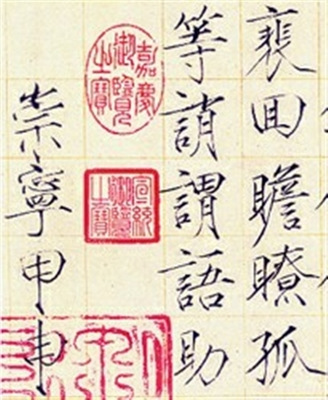 裵回瞻瞭孤
等誚謂語助
嘉慶
御覽
之寶
宣統
御覽
之寶
崇寧甲申